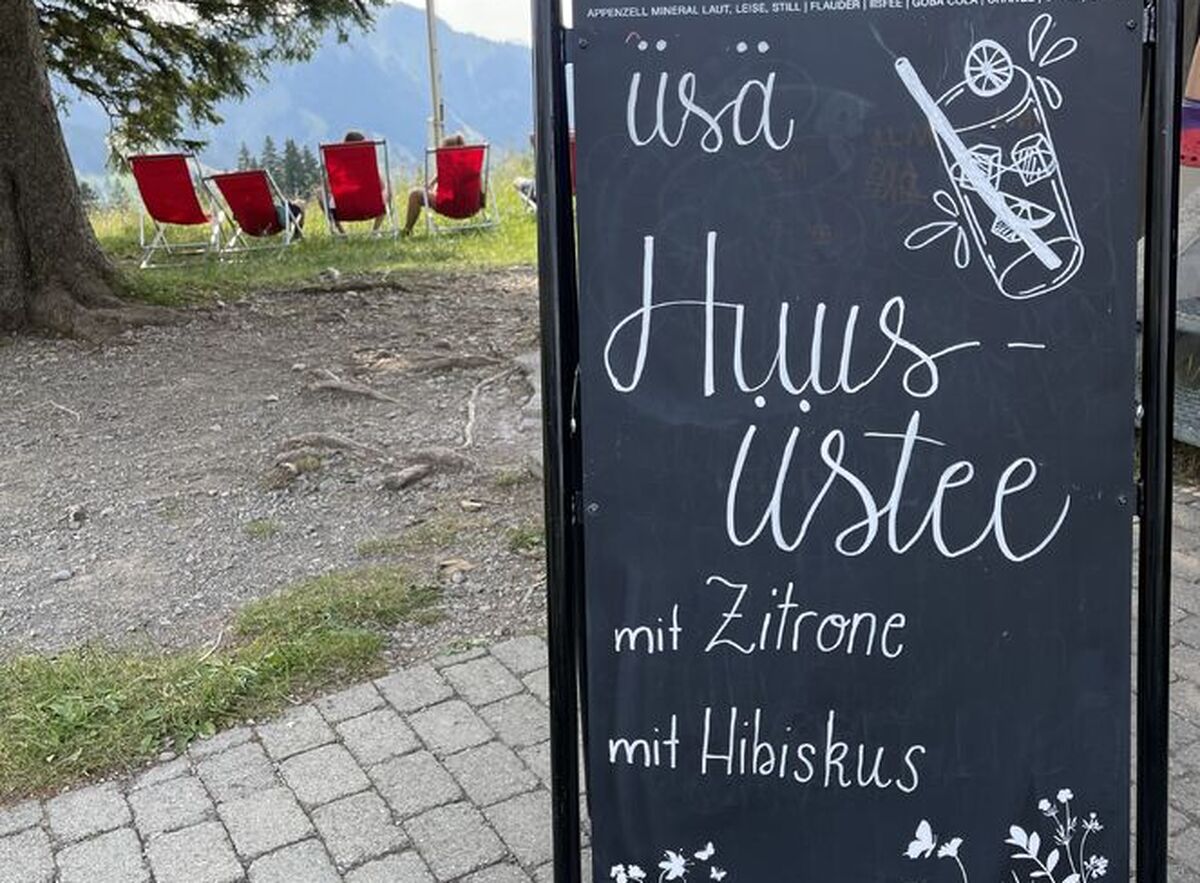 APPENZELL MINERAL LAUT, LEISE, STILL | FLAUDER | IISFEE | GOBA COLA |
üsä
Huus-
üstee
mit Zitrone
mit Hibiskus